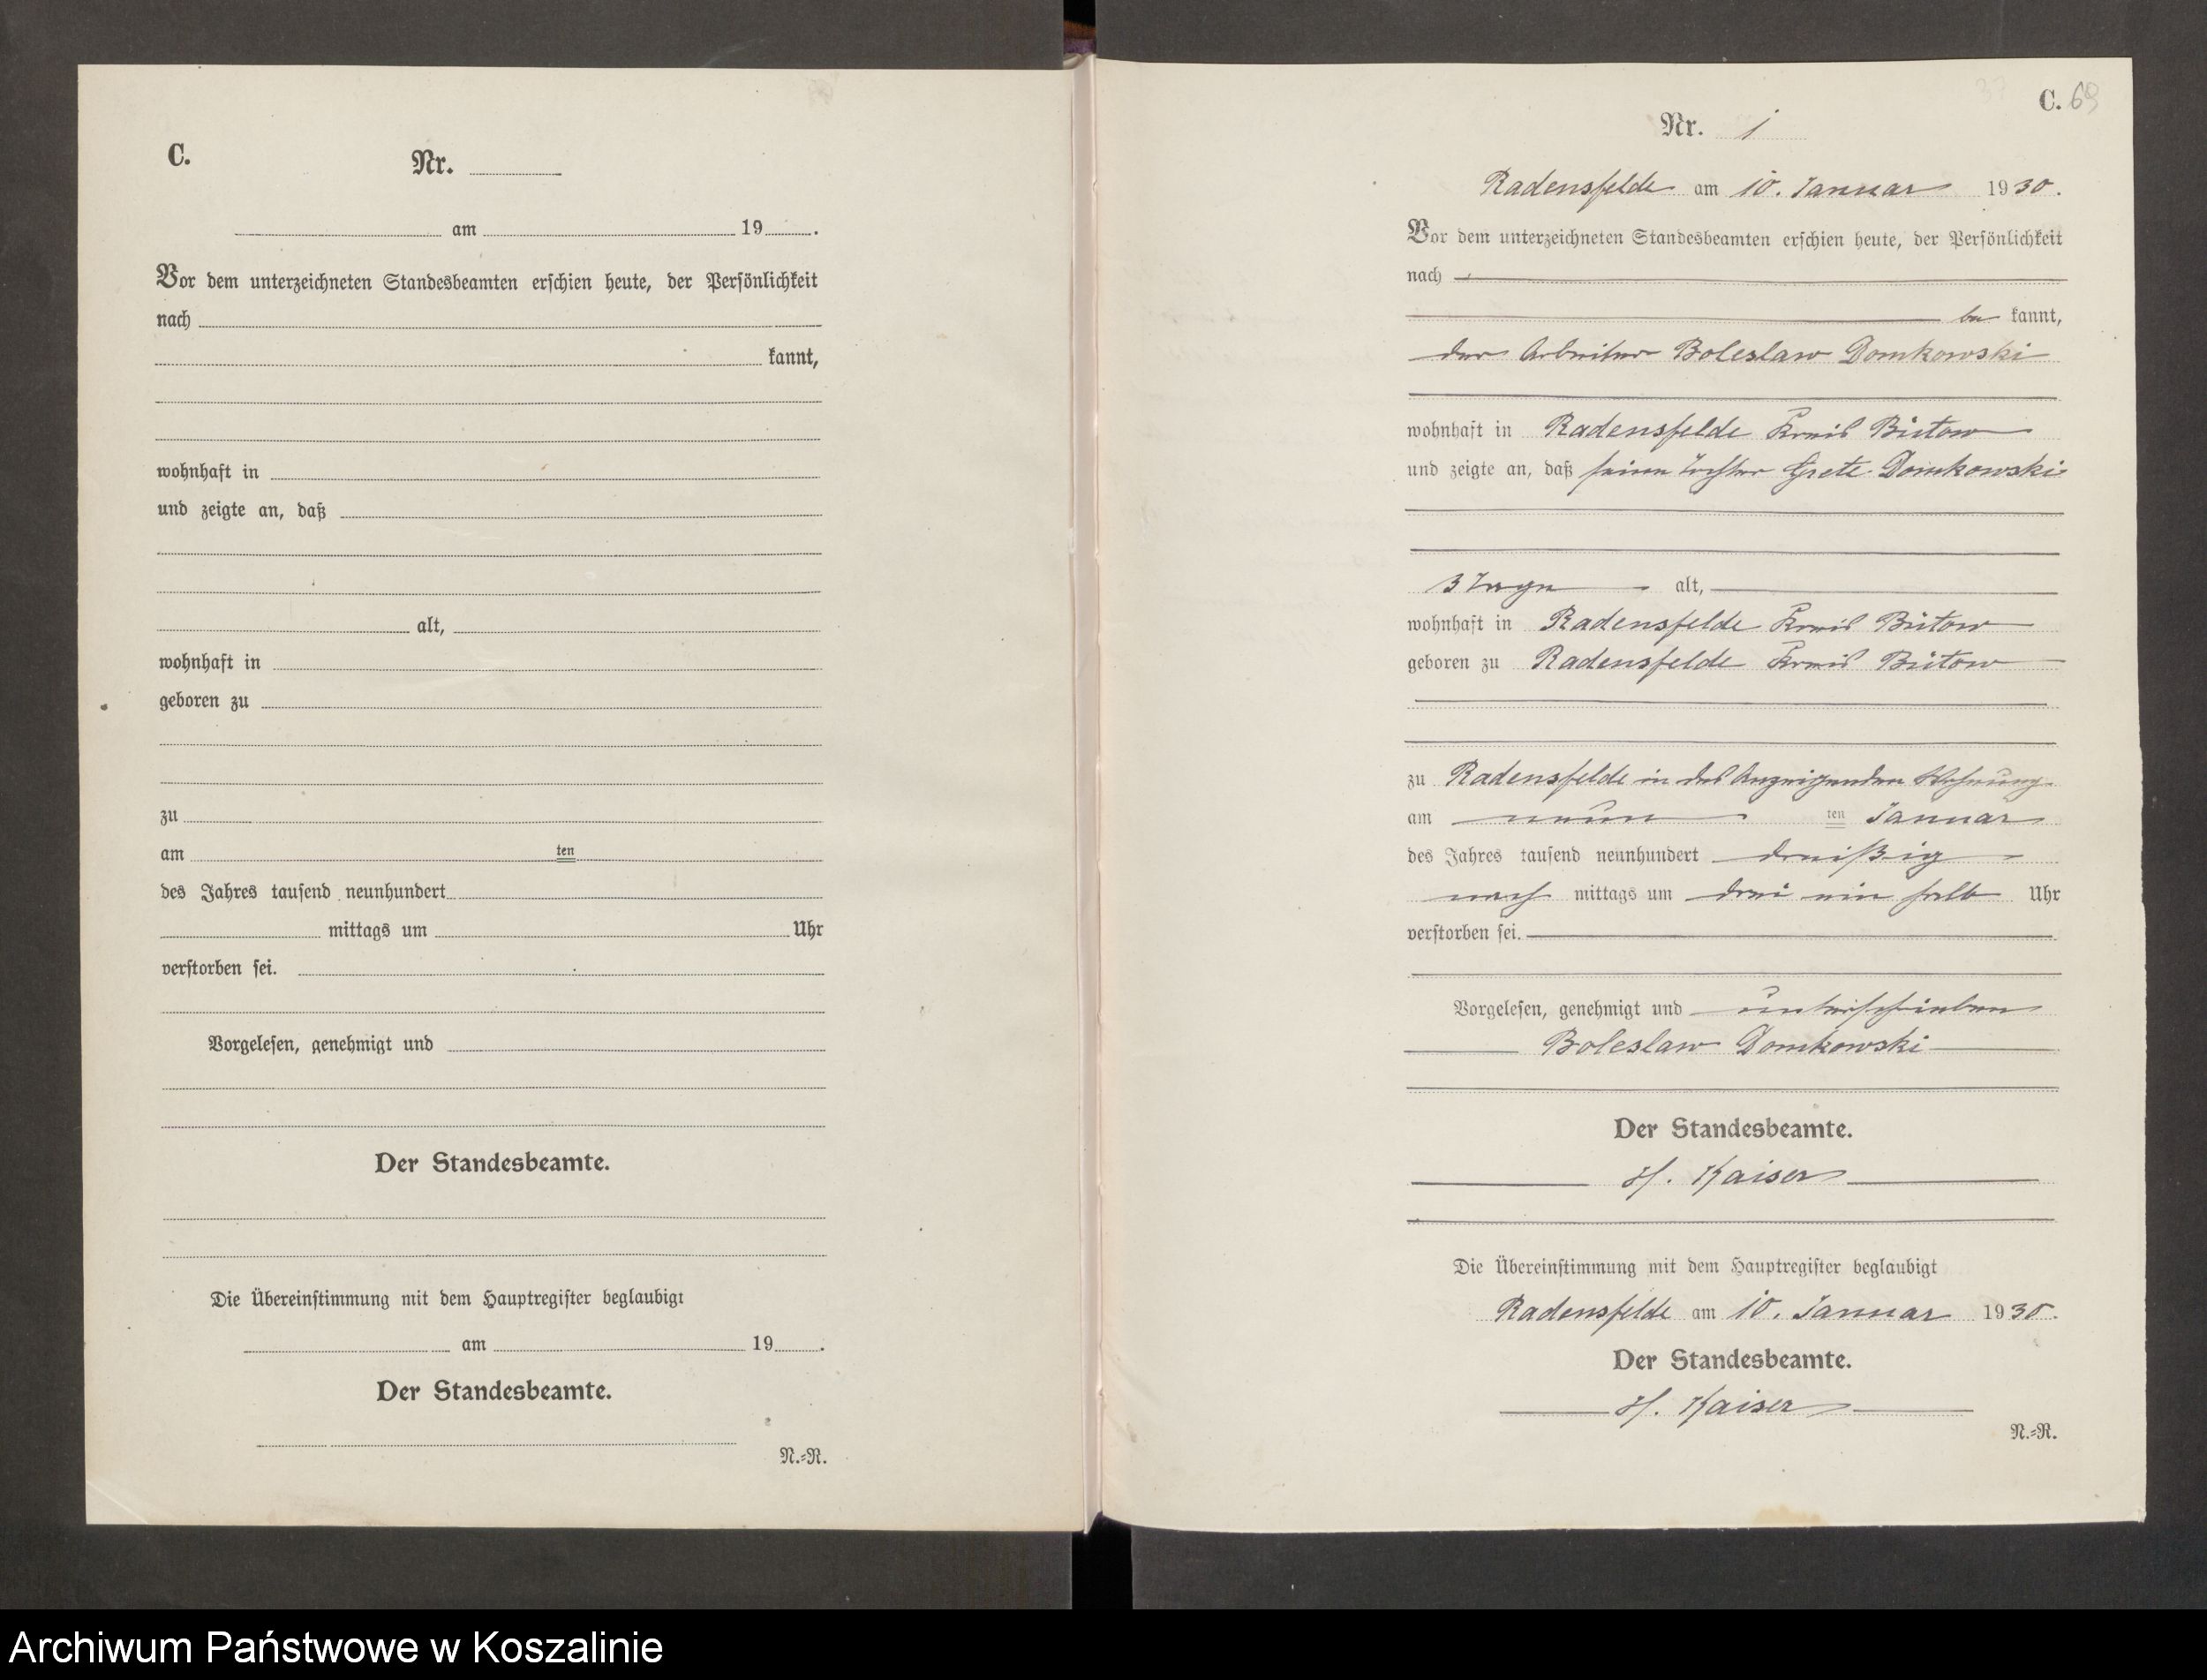 C.
Nr.
am 19 .
Vor dem unterzeichneten Standesbeamten erschien heute, der Persönlichkeit
nach
kannt,
wohnhaft in
und zeigte an, daß
alt,
wohnhaft in
geboren zu
zu
am ten
des Jahres tausend neunhundert
mittags um Uhr
verstorben sei.
Vorgelesen, genehmigt und
Der Standesbeamte.
Die Übereinstimmung mit dem Hauptregister beglaubigt
am 19 .
Der Standesbeamte.
N.=R.
C. 69
Nr. 1
Radensfelde am 10. Januar 1930.
Vor dem unterzeichneten Standesbeamten erschien heute, der Persönlichkeit
nach
be kannt,
der Arbeiter Boleslaw Domkowski
wohnhaft in Radensfelde Kreis Bütow
und zeigte an, daß seine Tochter Grete Domkowski
3 Tage alt,
wohnhaft in Radensfelde Kreis Bütow
geboren zu Radensfelde Kreis Bütow
zu Radensfelde in des Anzeigenden Wohnung
am neun ten Januar
des Jahres tausend neunhundert dreißig
nach mittags um drei ein halb Uhr
verstorben sei.
Vorgelesen, genehmigt und unterschrieben
Boleslaw Domkowski
Der Standesbeamte.
H. Kaiser
Die Übereinstimmung mit dem Hauptregister beglaubigt
Radensfelde am 10. Januar 1930.
Der Standesbeamte.
H. Kaiser
N.=R.
Archiwum Państwowe w Koszalinie